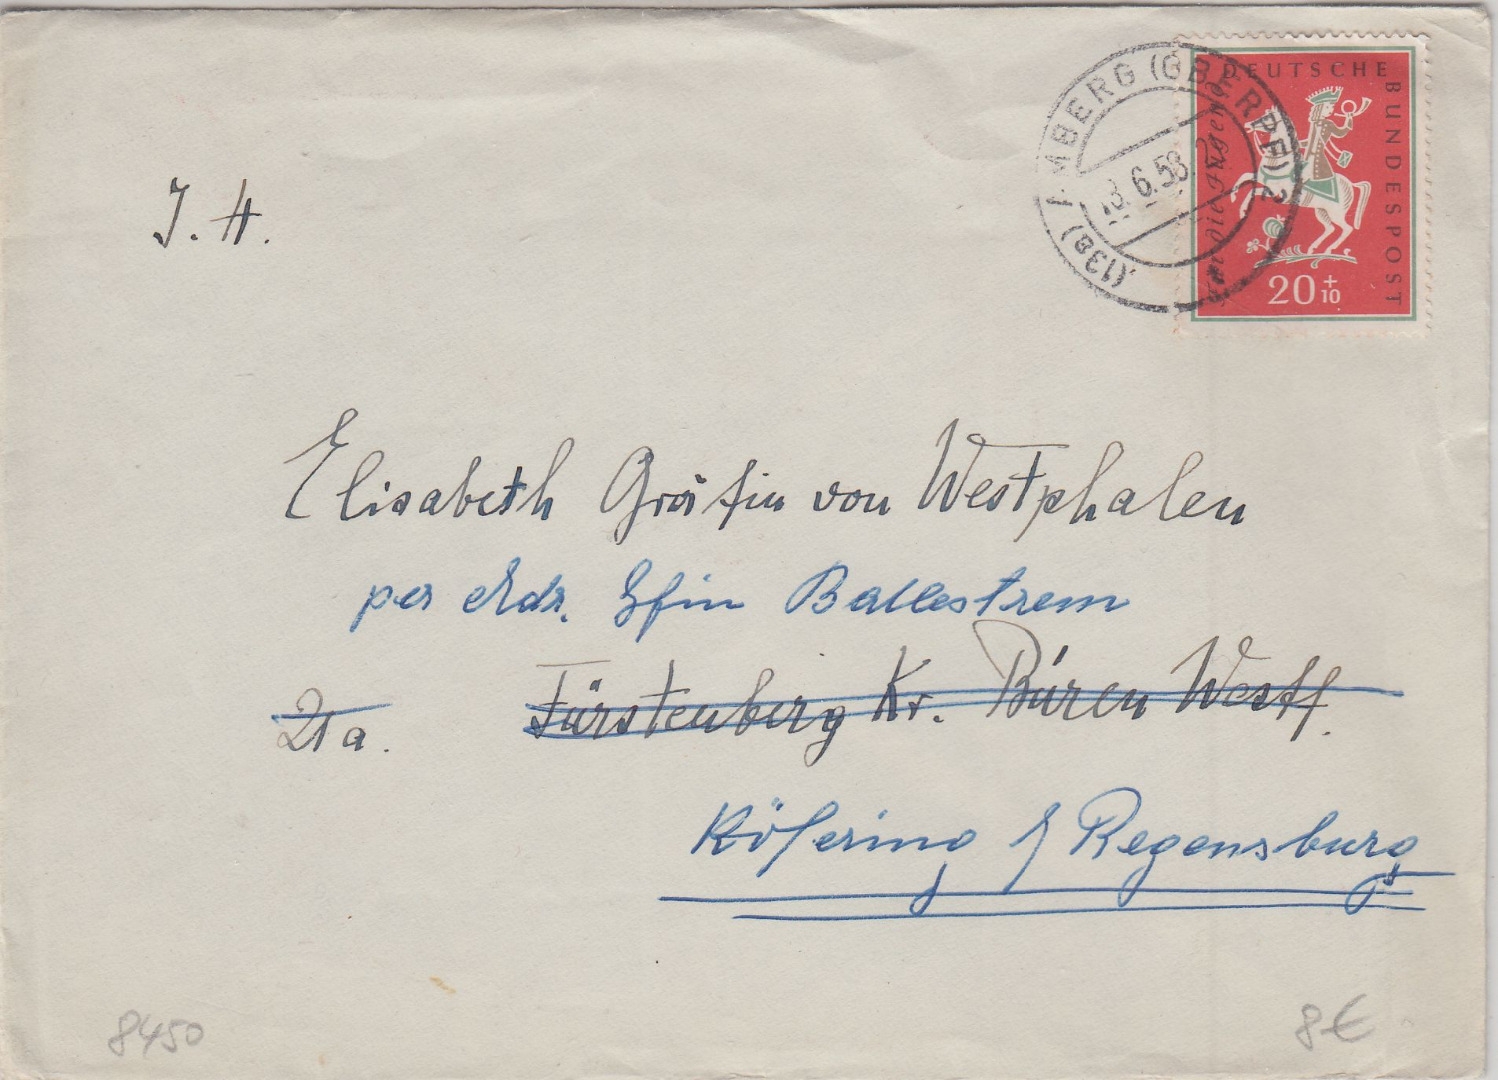 (13a) AMBERG (OBERPF) 2
3.6.58
DEUTSCHE
BUNDESPOST
Für die Jugend
20 + 10
J. H.
Elisabeth Gräfin von Westphalen
per Adr. Gfin Ballestrem
21a. Fürstenberg Kr. Büren Westf.
Köfering / Regensburg
8450
8€